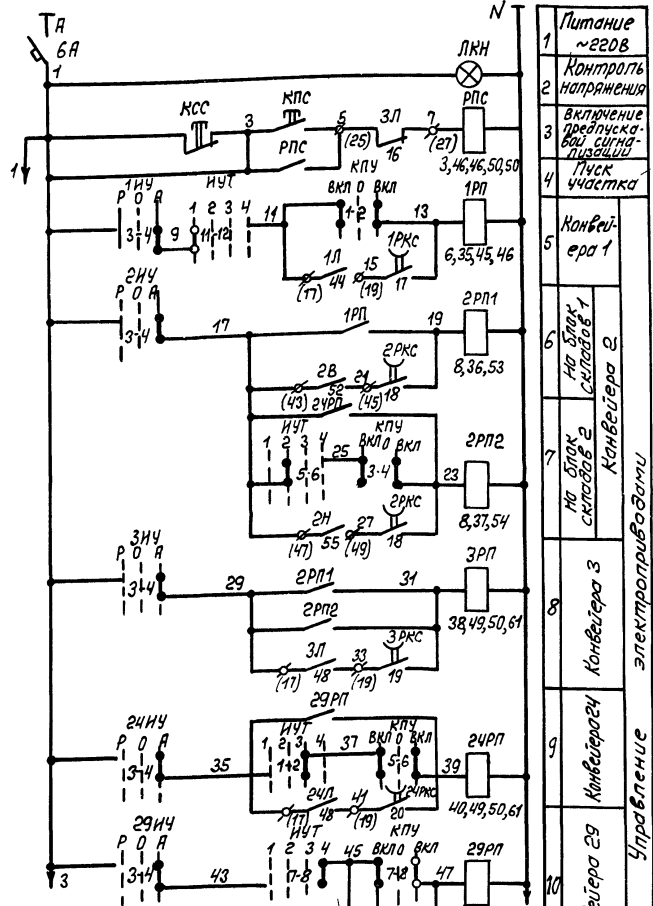 А
6А
1
N
ЛКН
КСС
3
КПС
РПС
5
(25)
3Л
16
7
(27)
РПС
3,46,46,50,50
1
1ИУ
Р О А
3-4
9
ИУТ
1 2 3 4
11-12
11
КПУ
ВКЛ О ВКЛ
1-2
13
1РП
6,35,45,46
1Л
(17) 44
15
(19)
1РКС
17
2ИУ
Р О А
3-4
17
1РП
19
2РП1
8,36,53
2В
(43) 52
21
(45)
2РКС
18
24РП
ИУТ
1 2 3 4
5-6
25
КПУ
ВКЛ О ВКЛ
3-4
23
2РП2
8,37,54
2Н
(47) 55
27
(49)
2РКС
18
3ИУ
Р О А
3-4
29
2РП1
31
3РП
38,49,50,61
2РП2
3Л
(17) 48
33
(19)
3РКС
19
24ИУ
Р О А
3-4
35
29РП
ИУТ
1 2 3 4
1-2
37
КПУ
ВКЛ О ВКЛ
5-6
39
24РП
40,49,50,61
24Л
(17) 48
41
(19)
24РКС
20
29ИУ
Р О А
3-4
43
ИУТ
1 2 3 4
7-8
45
КПУ
ВКЛ О ВКЛ
7-8
47
29РП
3
1 Питание
~220В
2 Контроль
напряжения
3 Включение
предпуска-
вой сигна-
лизации
4 Пуск
участка
5 Конвей-
ера 1
6 На блок
складов 1
7 На блок
складов 2
Канвейера 2
8 Канвейера 3
9 Канвейера 24
10 йера 29
Управление электроприводами